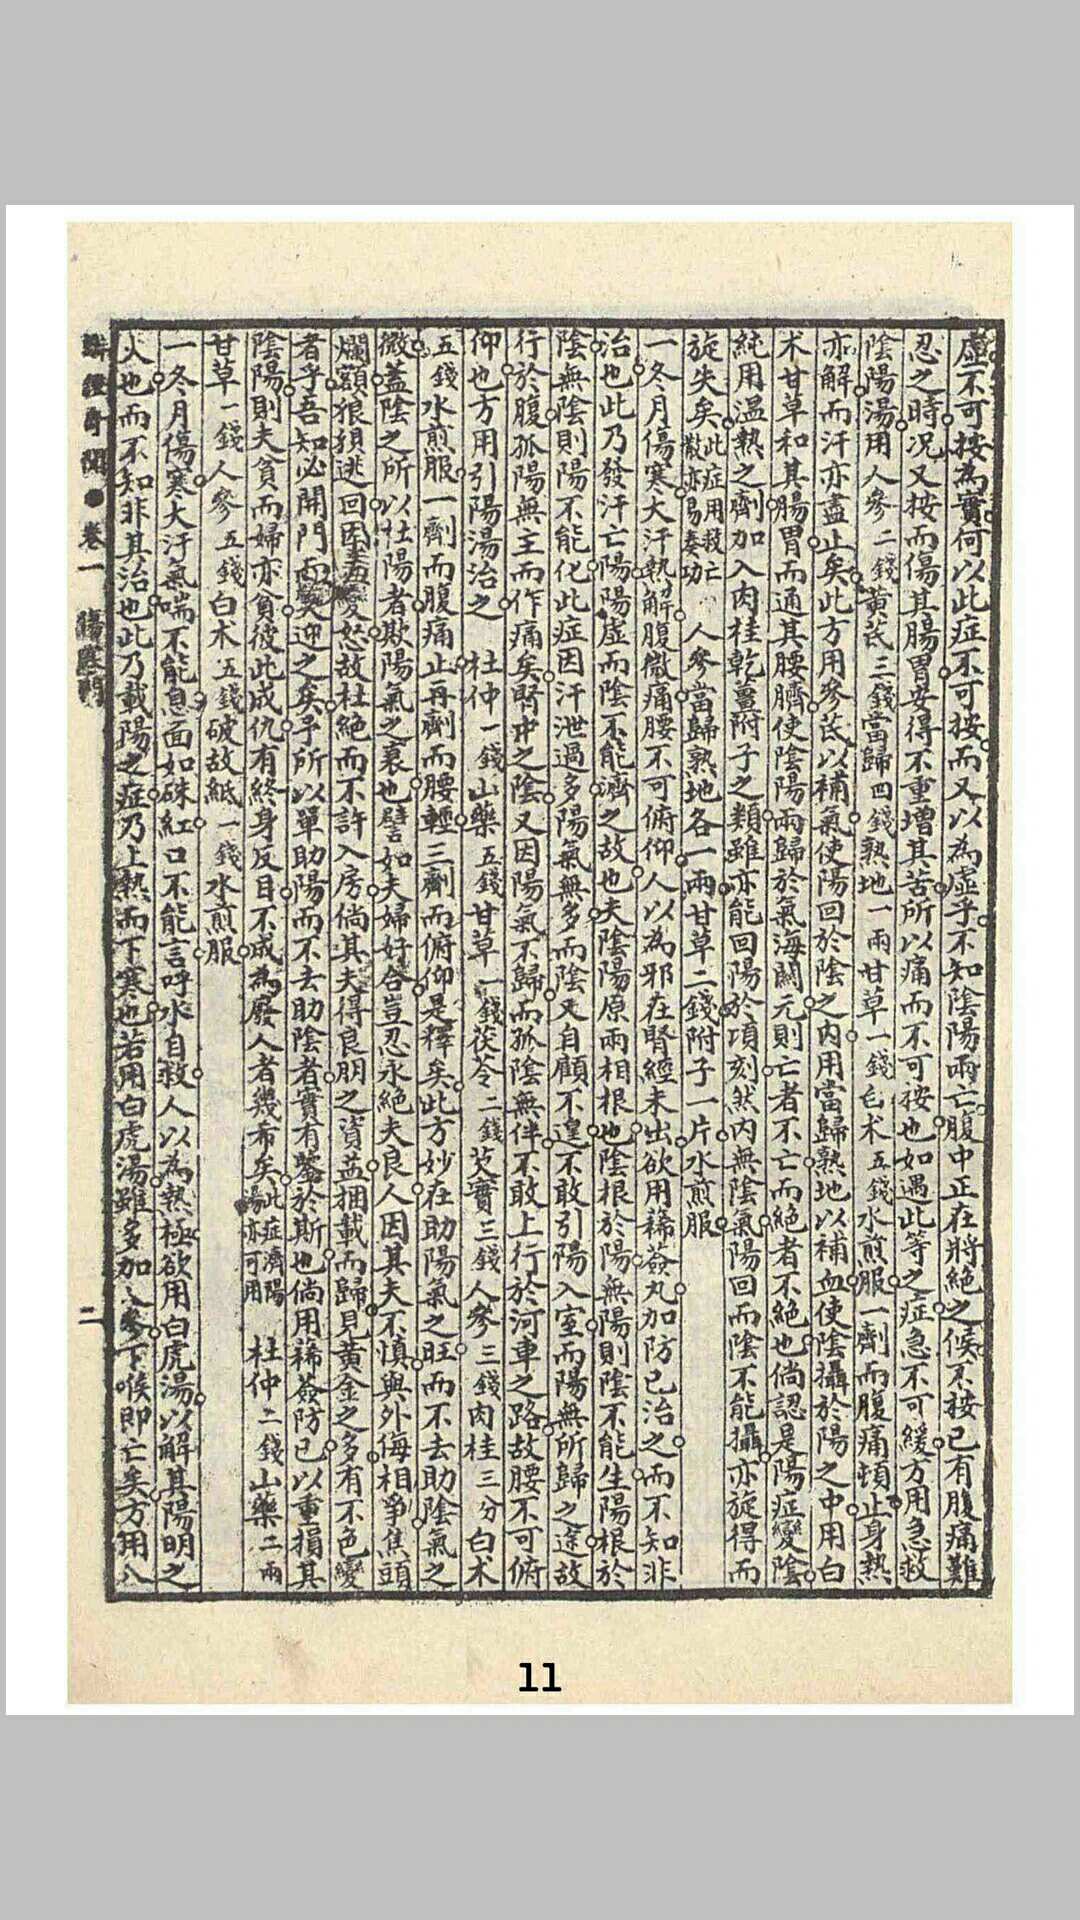 虛不可按為實何以此症不可按而又以為虛乎不知陰陽兩亡腹中正在將絕之候不按已有腹痛難
忍之時况又按而傷其腸胃安得不重增其苦所以痛而不可按也如遇此等之症急不可緩方用急救
陰陽湯用人參二錢黄芪三錢當歸四錢熟地一兩甘草一錢白术五錢水煎服一劑而腹痛頓止身熱
亦解而汗亦盡止矣此方用參芪以補氣使陽回於陰之内用當歸熟地以補血使陰攝於陽之中用白
术甘草和其腸胃而通其腰臍使陰陽兩歸於氣海關元則亡者不亡而絕者不絕也倘認是陽症變陰
純用温熱之劑加入肉桂乾薑附子之類雖亦能回陽於項刻然内無陰氣陽回而陰不能攝亦旋得而
旋失矣此症用救亡散亦易奏功 人參當歸熟地各一兩甘草二錢附子一片水煎服
一冬月傷寒大汗熱解腹微痛腰不可俯仰人以為邪在腎經未出欲用豨薟丸加防已治之而不知非
治也此乃發汗亡陽陽虛而陰不能濟之故也夫陰陽原兩相根也陰根於陽無陽則陰不能生陽根於
陰無陰則陽不能化此症因汗泄過多陽氣無多而陰又自顧不遑不敢引陽入室而陽無所歸之途故
行於腹孤陽無主而作痛矣腎中之陰又因陽氣不歸而孤陰無伴不敢上行於河車之路故腰不可俯
仰也方用引陽湯治之 杜仲一錢山藥五錢甘草一錢茯苓二錢芡實三錢人參三錢肉桂三分白术
五錢水煎服一劑而腹痛止再劑而腰輕三劑而俯仰是釋矣此方妙在助陽氣之旺而不去助陰氣之
微蓋陰之所以杜陽者欺陽氣之衰也譬如夫婦好合豈忍永絕夫良人因其夫不慎與外侮相爭焦頭
爛額狼狽逃回因羞變怒故杜絕而不許入房倘其夫得良朋之資益捆載而歸見黄金之多有不色變
者乎吾知必開門而笑迎之矣乎所以單助陽而不去助陰者實有鑒於斯也倘用豨薟防已以重損其
陰陽則夫貧而婦亦貧彼此成仇有終身反目不成為廢人者幾希矣此症濟陽湯亦可用 杜仲二錢山藥二兩
甘草一錢人參五錢白术五錢破故紙一錢水煎服
一冬月傷寒大汗氣喘不能息面如硃紅口不能言呼水自救人以為熱極欲用白虎湯以解其陽明之
火也而不知非其治也此乃載陽之症乃上熱而下寒也若用白虎湯雖多加人參下喉即亡矣方用八
卷一 傷寒門
二
11